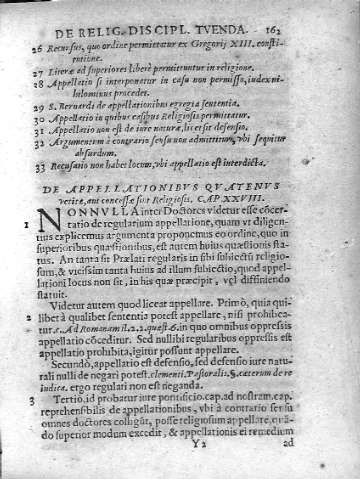 DE RELIG. DISCIPL. TVENDA. 162
26 Recursus, quo ordine permittatur ex Gregorij XIII. consti-
tutione.
27 Literæ ad superiores liberè permittuntur in religione.
28 Appellatio si interponetur in casu non permisso, iudex ni-
hilominus procedet.
29 S. Bernardi de appellationibus egregia sententia.
30 Appellatio in quibus casibus Religiosis permittatur.
31 Appellatio non est de iure naturæ, licet sit defensio.
32 Argumentum à contrario sensu non admittitur, vbi sequitur
absurdum.
33 Recusatio non habet locum, vbi appellatio est interdicta.
DE APPELLATIONIBVS QVATENVS
vetitæ, aut concessæ sint Religiosis. CAP. XXVIII.
1 NONNVLLA inter Doctores videtur esse cõcer-
tatio de regularium appellatione, quam vt diligen-
tius explicemus argumenta proponemus eo ordine, quo in
superioribus quæstionibus, est autem huius quæstionis sta-
tus. An tanta sit Prælati regularis in sibi subiectũ religio-
sum, & vicissim tanta huius ad illum subiectio, quod appel-
lationi locus non sit, in his quæ præcipit, vel diffiniendo
statuit.
Videtur autem quod liceat appellare. Primò, quia qui-
2 libet à qualibet sententia potest appellare, nisi prohibea-
tur. Ad Romanam il. 2. 2. quæst. 6. in quo omnibus oppressis
appellatio cõceditur. Sed nullibi regularibus oppressis est
appellatio prohibita, igitur possunt appellare.
Secundò, appellatio est defensio, sed defensio iure natu-
rali nulli de negari potest. clementi. Pastoralis. §. cæterum de re
iudica. ergo regulari non est neganda.
3 Tertio, id probatur iure pontificio. cap. ad nostram. cap.
reprehensibilis de appellationibus, vbi à contrario sensu
omnes doctores colligũt, posse religiosum appellare, quã-
do superior modum excedit, & appellationis ei remedium
Y 2 ad